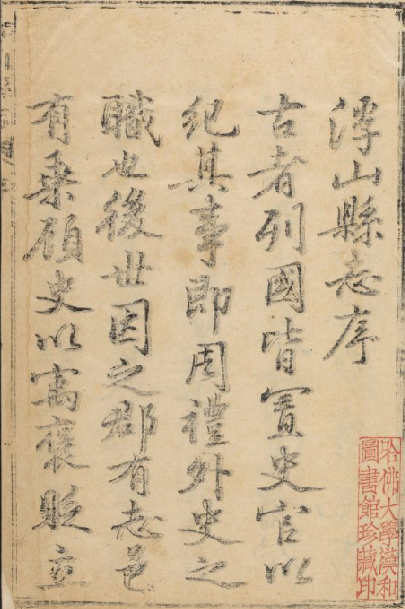 浮山縣志序
古者列國皆置史官以
紀其事即周禮外史之
職也後世因之郡有志邑
有乘顧史以寓褒貶立
哈佛大學漢和
圖書館珍藏印